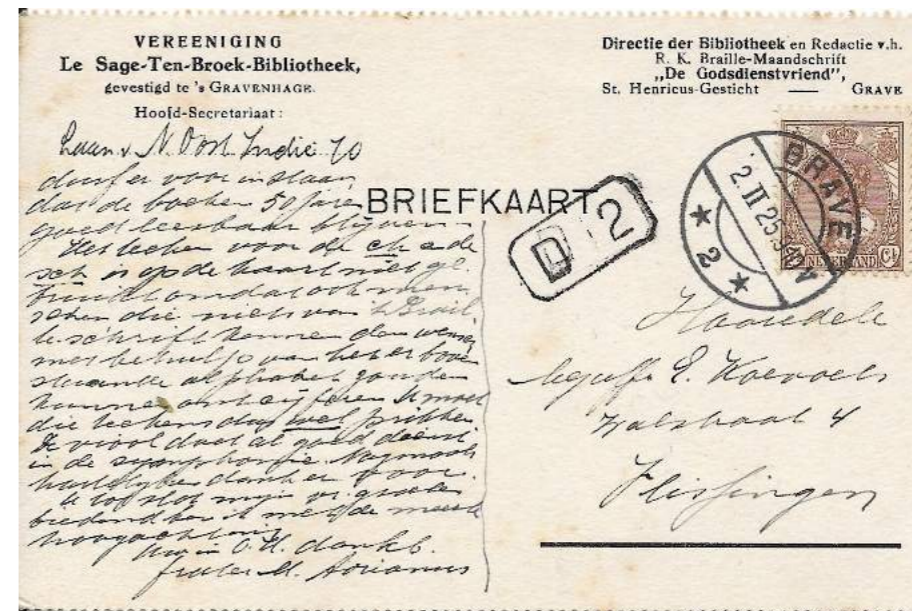 VEREENIGING
Le Sage-Ten-Broek-Bibliotheek,
gevestigd te 's GRAVENHAGE.
Hoofd-Secretariaat:
Laan v. N. Oost Indië 70
durf er voor instaan
dat de boeken 50 jaren
goed leesbaar blijven.
Het teken voor de ch e de
sch is op de kaart niet ge
bruikt omdat ook men
schen die niets van 't Brail
le schrift kennen den wensch
met behulp van het er boven
staande alphabet zouden
kunnen ontcijferen. U moet
die teekens dus wel prikken.
De viool doet al goed dienst
in de symphonie. Nogmaals
hartelijken dank er voor.
U tot slot mijn groeten
biedend ben ik met de meeste
hoogachting
Uw in O. H. dankb.
frater M. Adrianus
Directie der Bibliotheek en Redactie v.h.
R. K. Braille-Maandschrift
„De Godsdienstvriend",
St. Henricus-Gesticht — GRAVE
BRIEFKAART
D 2
GRAVE
2. II 25. 3-4 N
* 2 *
NEDERLAND
Ct
E. Koevoets
Walstraat 4
Vlissingen